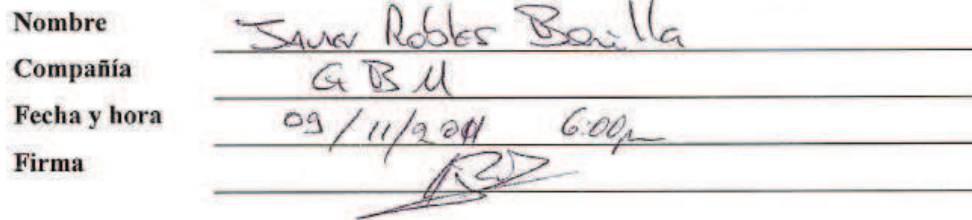 Nombre Javier Robles Bonilla
Compañía GBM
Fecha y hora 09/11/2011 6:00pm
Firma